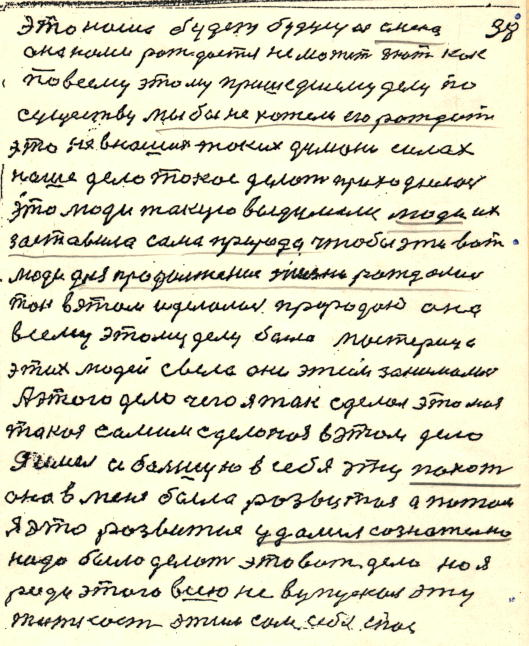 это наша будет будущая смена 38
она нами рождается не может знат как
по всему этому пришедшему делу по
существу мы бы не хотели его рождать
это не в наших таких людмони силах
наше дело токое делат приходилос
это люди такую выдумали люди их
заставила сама природа чтобы эти вот
люди для продолжение жизни рождалис
так в этом и делалос природою она
всему этому делу была мастерица
этих людей свела они этим занималис
А этого дело чего я так сделал это моя
такоя самим сделоноя в этом дело
я имел и большую в себя эту похот
она в меня была розвитая а потом
я это розвитие удалил сознателно
надо было делат это вот дело но я
ради этого всего не выпускал эту
житкост этим сам себя спас